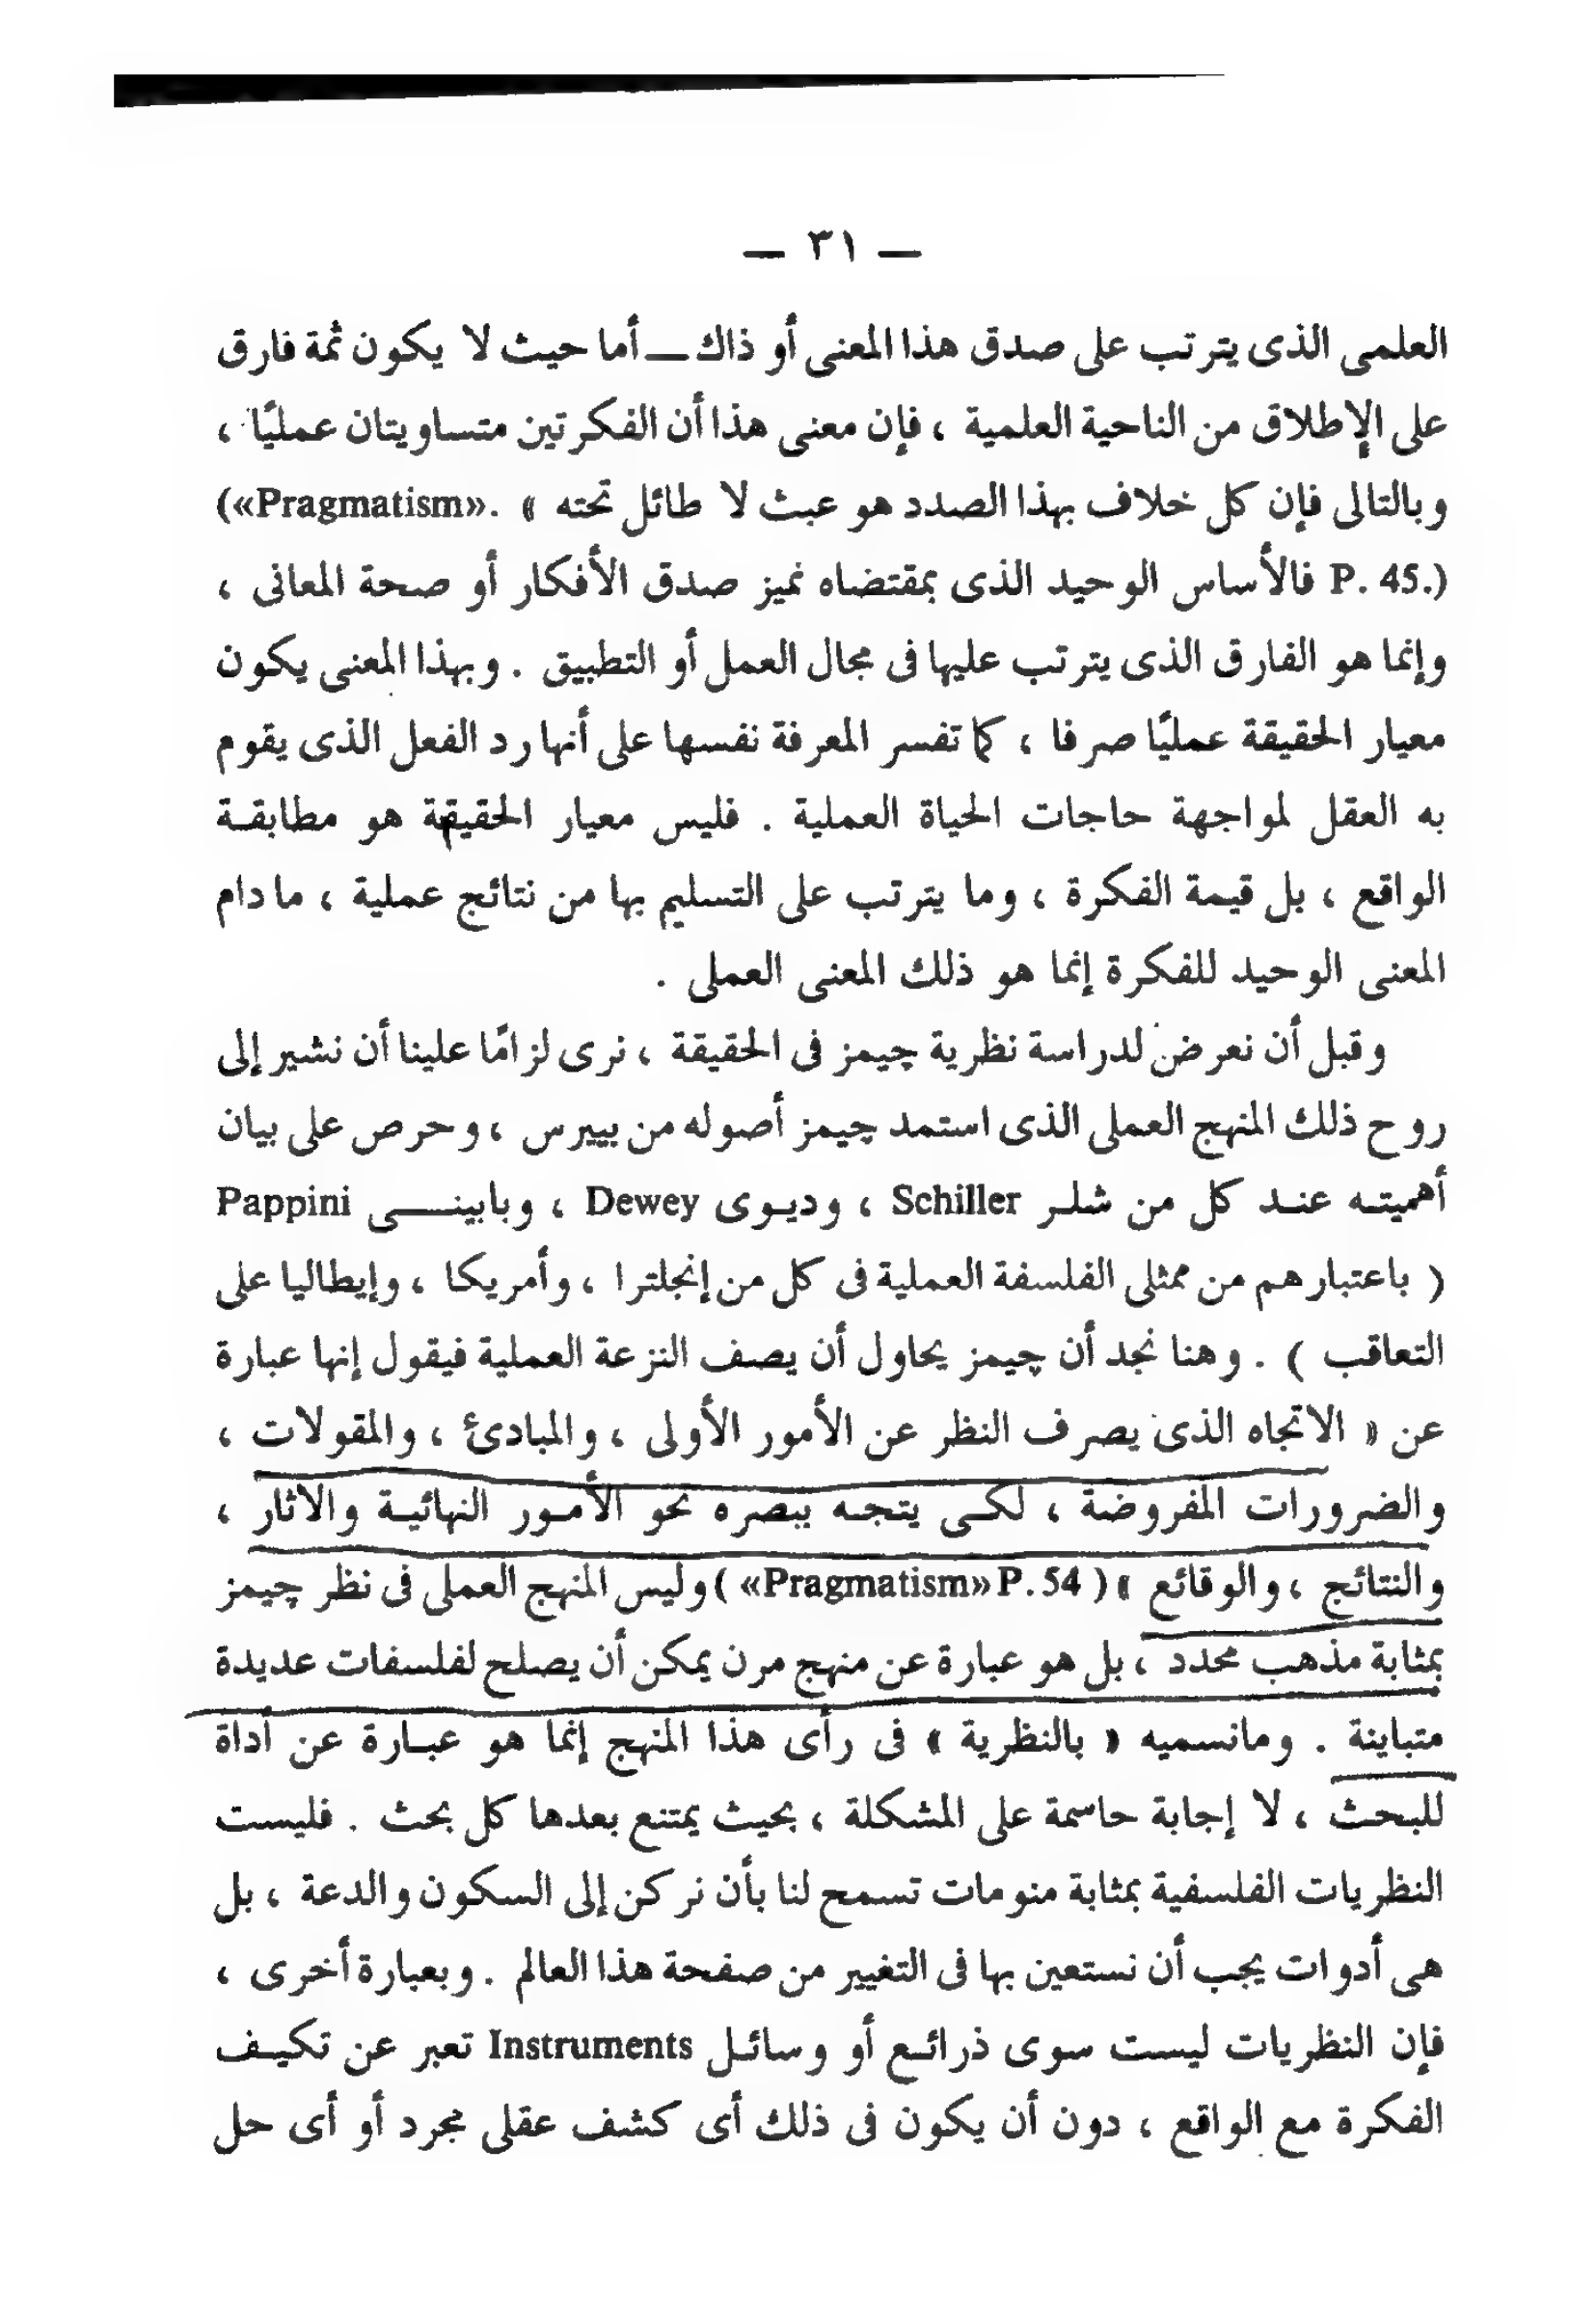 — ٣١ —
العلمى الذى يترتب على صدق هذا المعنى أو ذاك — أما حيث لا يكون ثمة فارق
على الإطلاق من الناحية العلمية ، فإن معنى هذا أن الفكرتين متساويتان عمليًا ،
وبالتالى فإن كل خلاف بهذا الصدد هو عبث لا طائل تحته » .(«Pragmatism»
P. 45.) فالأساس الوحيد الذى بمقتضاه نميز صدق الأفكار أو صحة المعانى ،
وإنما هو الفارق الذى يترتب عليها فى مجال العمل أو التطبيق . وبهذا المعنى يكون
معيار الحقيقة عمليًا صرفا ، كما تفسر المعرفة نفسها على أنها رد الفعل الذى يقوم
به العقل لمواجهة حاجات الحياة العملية . فليس معيار الحقيقة هو مطابقة
الواقع ، بل قيمة الفكرة ، وما يترتب على التسليم بها من نتائج عملية ، ما دام
المعنى الوحيد للفكرة إنما هو ذلك المعنى العملى .
وقبل أن نعرض لدراسة نظرية چيمز فى الحقيقة ، نرى لزامًا علينا أن نشير إلى
روح ذلك المنهج العملى الذى استمد چيمز أصوله من بييرس ، وحرص على بيان
أهميته عند كل من شلر Schiller ، وديوى Dewey ، وبابينى Pappini
( باعتبارهم من ممثلى الفلسفة العملية فى كل من إنجلترا ، وأمريكا ، وإيطاليا على
التعاقب ) . وهنا نجد أن چيمز يحاول أن يصف النزعة العملية فيقول إنها عبارة
عن « الاتجاه الذى يصرف النظر عن الأمور الأولى ، والمبادئ ، والمقولات ،
والضرورات المفروضة ، لكى يتجه ببصره نحو الأمور النهائية والاثار ،
والنتائج ، والوقائع » ( «Pragmatism» P. 54 ) وليس المنهج العملى فى نظر چيمز
بمثابة مذهب محدد ، بل هو عبارة عن منهج مرن يمكن أن يصلح لفلسفات عديدة
متباينة . ومانسميه « بالنظرية » فى رأى هذا المنهج إنما هو عبارة عن أداة
للبحث ، لا إجابة حاسمة على المشكلة ، بحيث يمتنع بعدها كل بحث . فليست
النظريات الفلسفية بمثابة منومات تسمح لنا بأن نركن إلى السكون والدعة ، بل
هى أدوات يجب أن نستعين بها فى التغيير من صفحة هذا العالم . وبعبارة أخرى ،
فإن النظريات ليست سوى ذرائع أو وسائل Instruments تعبر عن تكيف
الفكرة مع الواقع ، دون أن يكون فى ذلك أى كشف عقلى مجرد أو أى حل